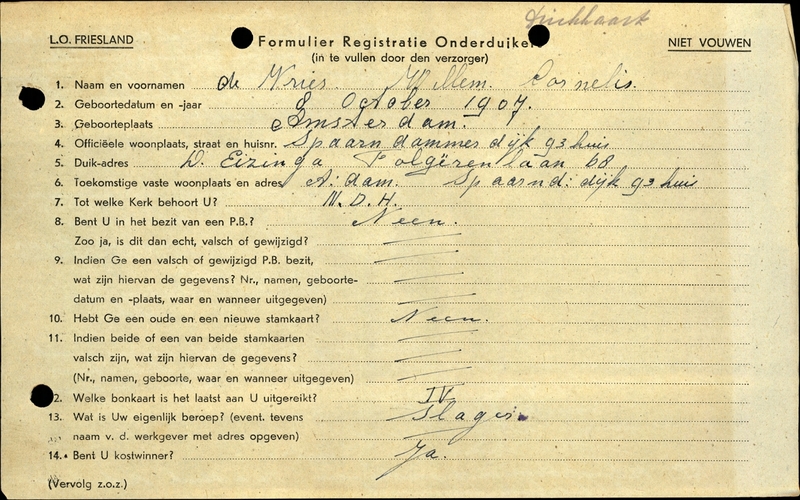 L.O. FRIESLAND
Formulier Registratie Onderduiker
NIET VOUWEN
(in te vullen door den verzorger)
1. Naam en voornamen de Vries. Willem. Cornelis.
2. Geboortedatum en -jaar 8 October 1907.
3. Geboorteplaats Amsterdam.
4. Officiëele woonplaats, straat en huisnr. Spaarndammerdijk 93 huis
5. Duik-adres D. Eizinga 68
6. Toekomstige vaste woonplaats en adres A: dam. Spaarnd: dijk 93 huis
7. Tot welke Kerk behoort U? N.D.H.
8. Bent U in het bezit van een P.B.? Neen.
Zoo ja, is dit dan echt, valsch of gewijzigd?
9. Indien Ge een valsch of gewijzigd P.B. bezit,
wat zijn hiervan de gegevens? Nr., namen, geboorte-
datum en -plaats, waar en wanneer uitgegeven)
10. Hebt Ge een oude en een nieuwe stamkaart? Neen.
11. Indien beide of een van beide stamkaarten
valsch zijn, wat zijn hiervan de gegevens?
(Nr., namen, geboorte, waar en wanneer uitgegeven)
2. Welke bonkaart is het laatst aan U uitgereikt? IV.
13. Wat is Uw eigenlijk beroep? (event. tevens Slager.
naam v. d. werkgever met adres opgeven)
14. Bent U kostwinner? Ja.
(Vervolg z.o.z.)